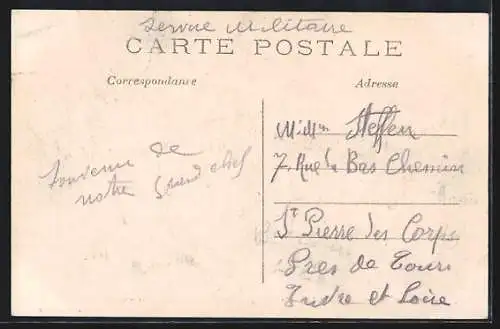 Service Militaire
CARTE POSTALE
Correspondance
Adresse
Souvenir de
notre Grand chef
Steffen
7, Rue du Bas Chemin
St Pierre des Corps
Pres de Tours
Indre et Loire